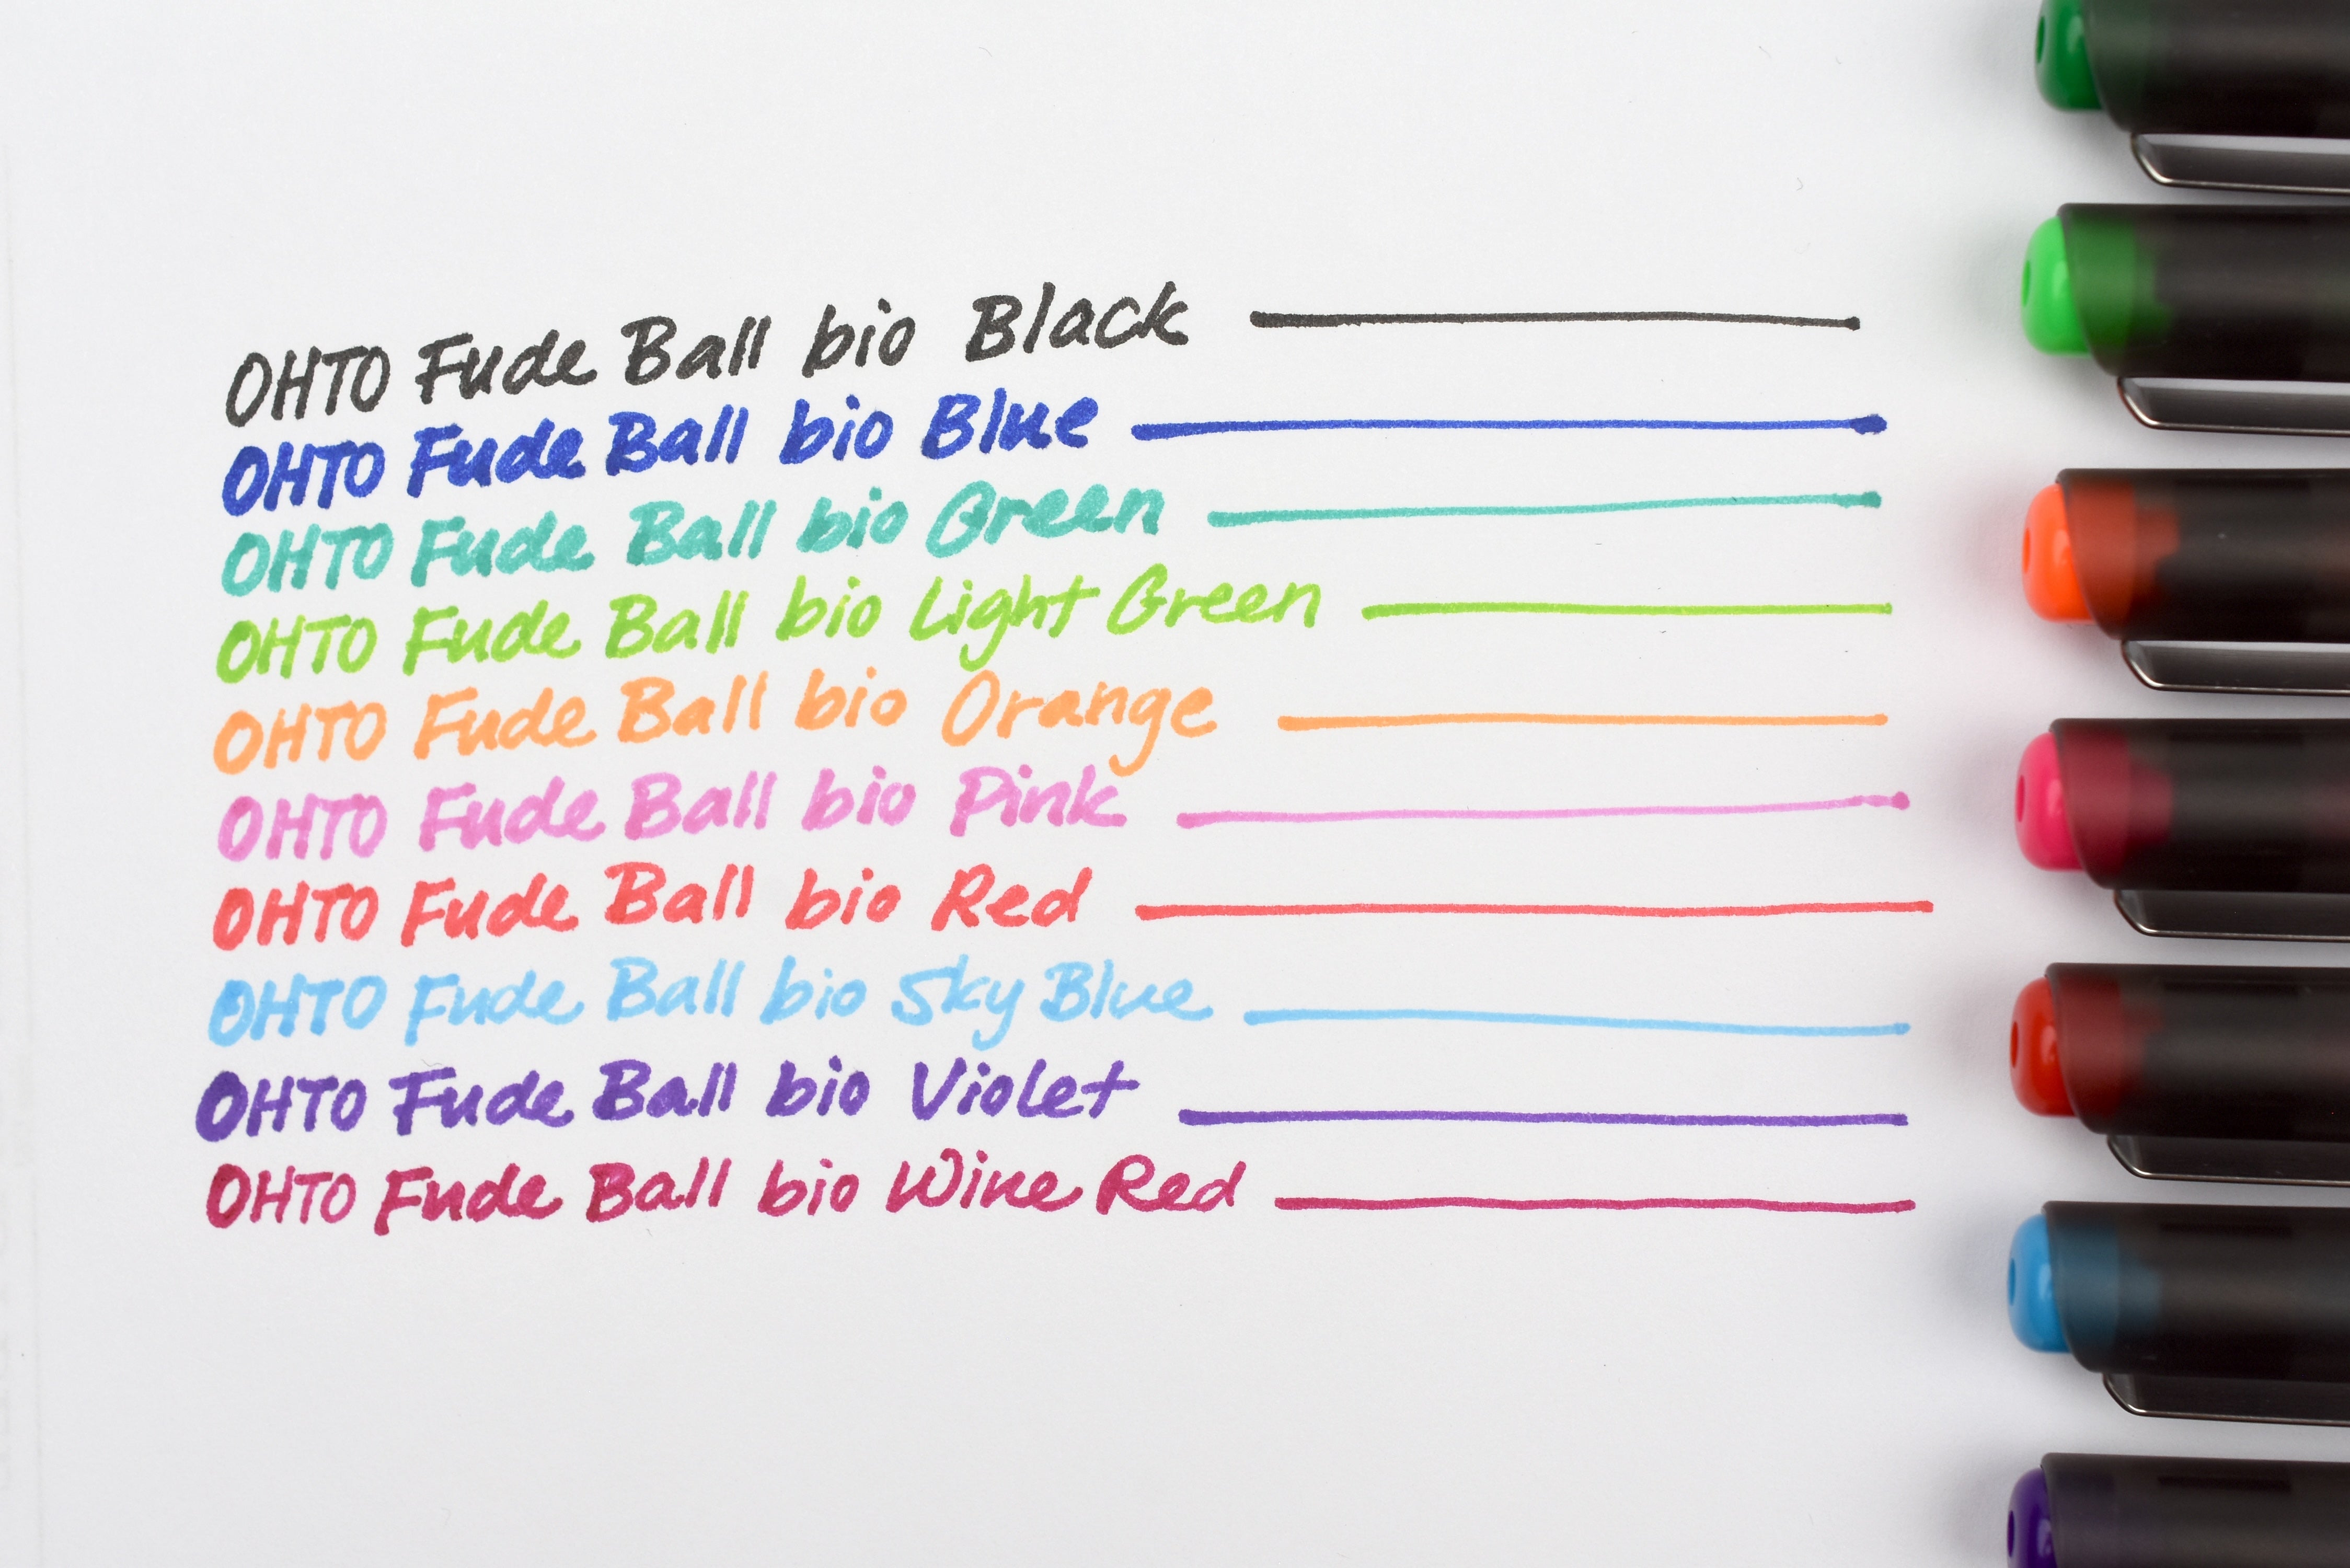 OHTO Fude Ball bio Black
OHTO Fude Ball bio Blue
OHTO Fude Ball bio Green
OHTO Fude Ball bio Light Green
OHTO Fude Ball bio Orange
OHTO Fude Ball bio Pink
OHTO Fude Ball bio Red
OHTO Fude Ball bio Sky Blue
OHTO Fude Ball bio Violet
OHTO Fude Ball bio Wine Red